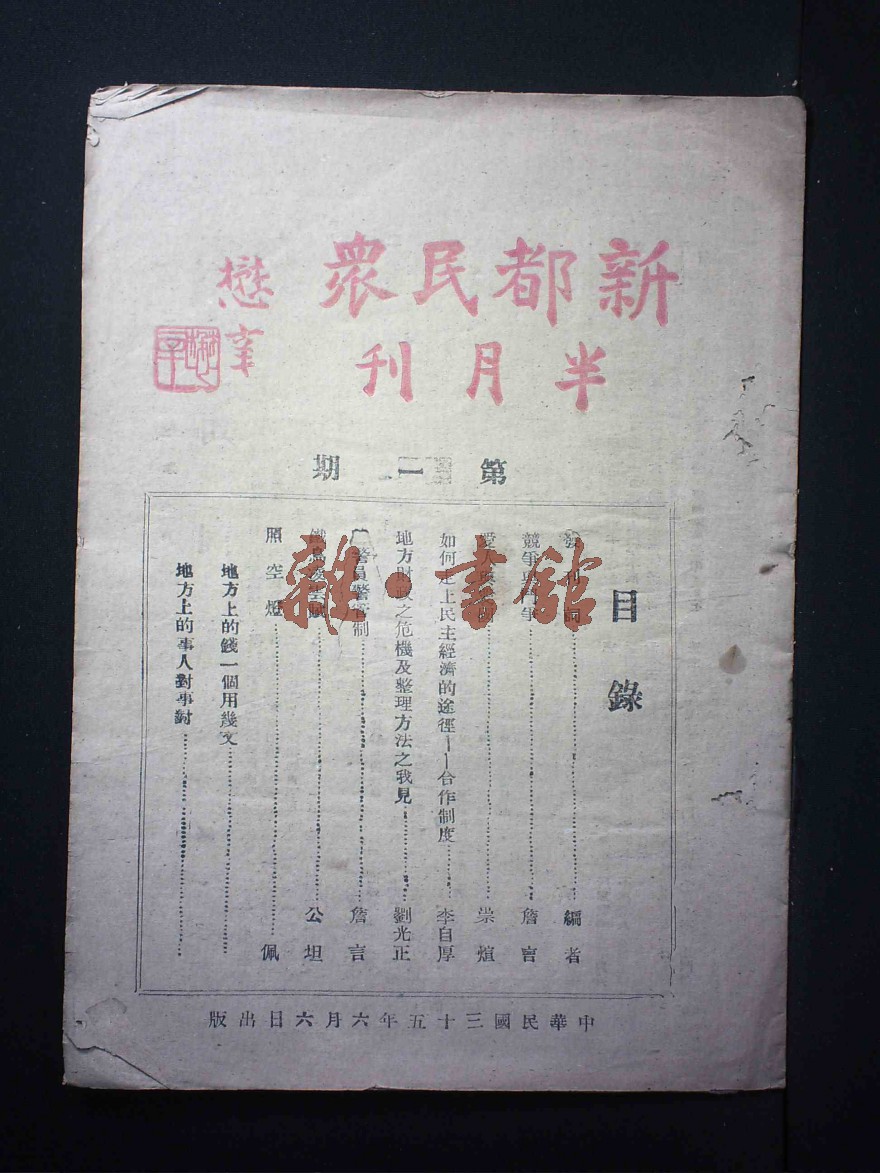 新都民眾
半月刊
懋
第一期
目錄
發刊詞 編者
競爭與鬥爭 詹言
崇煊
如何走上民主經濟的途徑——合作制度 李自厚
地方財政之危機及整理方法之我見 劉光正
警員警管制 詹言
公坦
照空燈 佩
地方上的錢一個用幾文
地方上的事人對事對
中華民國三十五年六月六日出版
雜·書館